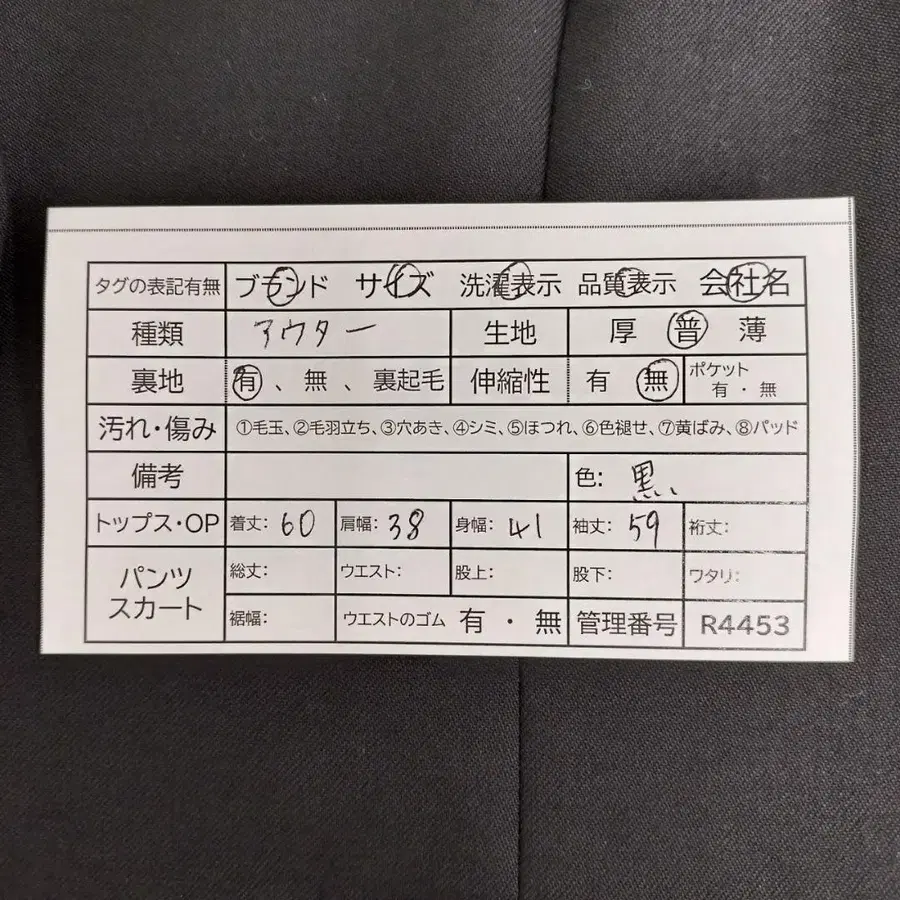 タグの表記有無 ブランド サイズ 洗濯表示 品質表示 会社名
種類 アウター 生地 厚 普 薄
裏地 有、無、裏起毛 伸縮性 有 無 ポケット 有・無
汚れ・傷み ①毛玉、②毛羽立ち、③穴あき、④シミ、⑤ほつれ、⑥色褪せ、⑦黄ばみ、⑧パッド
備考 色: 黒
トップス・OP 着丈: 60 肩幅: 38 身幅: 41 袖丈: 59 裄丈:
パンツ スカート 総丈: ウエスト: 股上: 股下: ワタリ:
裾幅: ウエストのゴム 有・無 管理番号 R4453